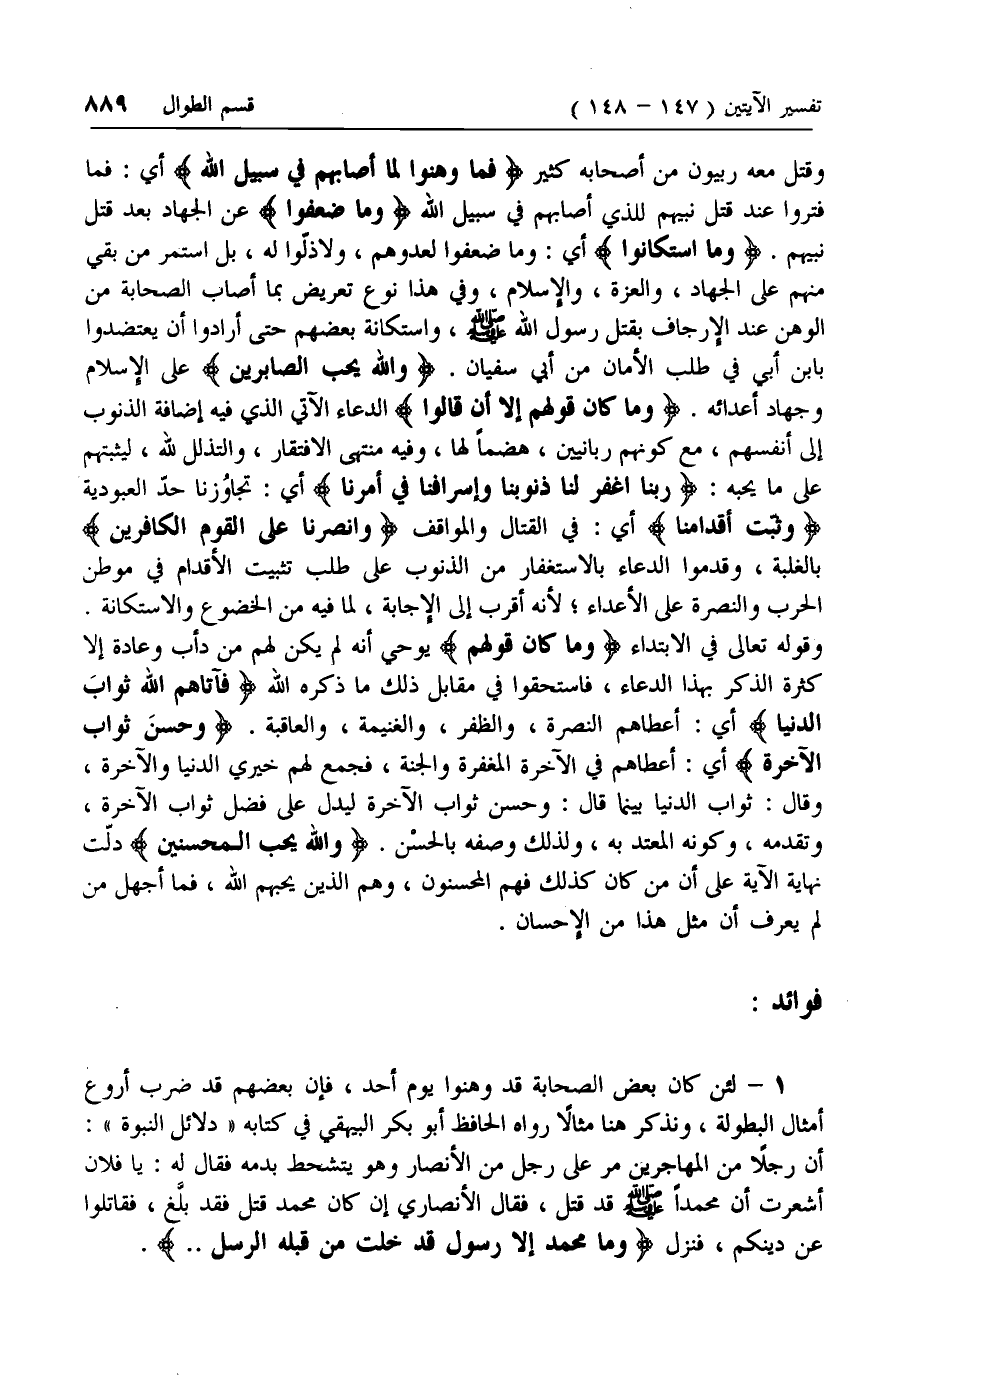 تفسير الآيتين ( ١٤٧ – ١٤٨ ) قسم الطوال ٨٨٩
وقتل معه ربيون من أصحابه كثير ﴿ فما وهنوا لما أصابهم في سبيل الله ﴾ أي : فما
فتروا عند قتل نبيهم للذي أصابهم في سبيل الله ﴿ وما ضعفوا ﴾ عن الجهاد بعد قتل
نبيهم . ﴿ وما استكانوا ﴾ أي : وما ضعفوا لعدوهم ، ولاذلّوا له ، بل استمر من بقي
منهم على الجهاد ، والعزة ، والإسلام ، وفي هذا نوع تعريض بما أصاب الصحابة من
الوهن عند الإرجاف بقتل رسول الله ﷺ ، واستكانة بعضهم حتى أرادوا أن يعتضدوا
بابن أبي في طلب الأمان من أبي سفيان . ﴿ والله يحب الصابرين ﴾ على الإسلام
وجهاد أعدائه . ﴿ وما كان قولهم إلا أن قالوا ﴾ الدعاء الآتي الذي فيه إضافة الذنوب
إلى أنفسهم ، مع كونهم ربانيين ، هضماً لها ، وفيه منتهى الافتقار ، والتذلل لله ، ليثبتهم
على ما يحبه : ﴿ ربنا اغفر لنا ذنوبنا وإسرافنا في أمرنا ﴾ أي : تجاوُزنا حدّ العبودية
﴿ وثبّت أقدامنا ﴾ أي : في القتال والمواقف ﴿ وانصرنا على القوم الكافرين ﴾
بالغلبة ، وقدموا الدعاء بالاستغفار من الذنوب على طلب تثبيت الأقدام في موطن
الحرب والنصرة على الأعداء ؛ لأنه أقرب إلى الإجابة ، لما فيه من الخضوع والاستكانة .
وقوله تعالى في الابتداء ﴿ وما كان قولهم ﴾ يوحي أنه لم يكن لهم من دأب وعادة إلا
كثرة الذكر بهذا الدعاء ، فاستحقوا في مقابل ذلك ما ذكره الله ﴿ فآتاهم الله ثوابَ
الدنيا ﴾ أي : أعطاهم النصرة ، والظفر ، والغنيمة ، والعاقبة . ﴿ وحسنَ ثواب
الآخرة ﴾ أي : أعطاهم في الآخرة المغفرة والجنة ، فجمع لهم خيري الدنيا والآخرة ،
وقال : ثواب الدنيا بينما قال : وحسن ثواب الآخرة ليدل على فضل ثواب الآخرة ،
وتقدمه ، وكونه المعتد به ، ولذلك وصفه بالحسْن . ﴿ والله يحب المحسنين ﴾ دلّت
نهاية الآية على أن من كان كذلك فهم المحسنون ، وهم الذين يحبهم الله ، فما أجهل من
لم يعرف أن مثل هذا من الإحسان .
فوائد :
١ – لئن كان بعض الصحابة قد وهنوا يوم أحد ، فإن بعضهم قد ضرب أروع
أمثال البطولة ، ونذكر هنا مثالًا رواه الحافظ أبو بكر البيهقي في كتابه « دلائل النبوة » :
أن رجلًا من المهاجرين مر على رجل من الأنصار وهو يتشحط بدمه فقال له : يا فلان
أشعرت أن محمداً ﷺ قد قتل ، فقال الأنصاري إن كان محمد قتل فقد بلَّغ ، فقاتلوا
عن دينكم ، فنزل ﴿ وما محمد إلا رسول قد خلت من قبله الرسل .. ﴾ .